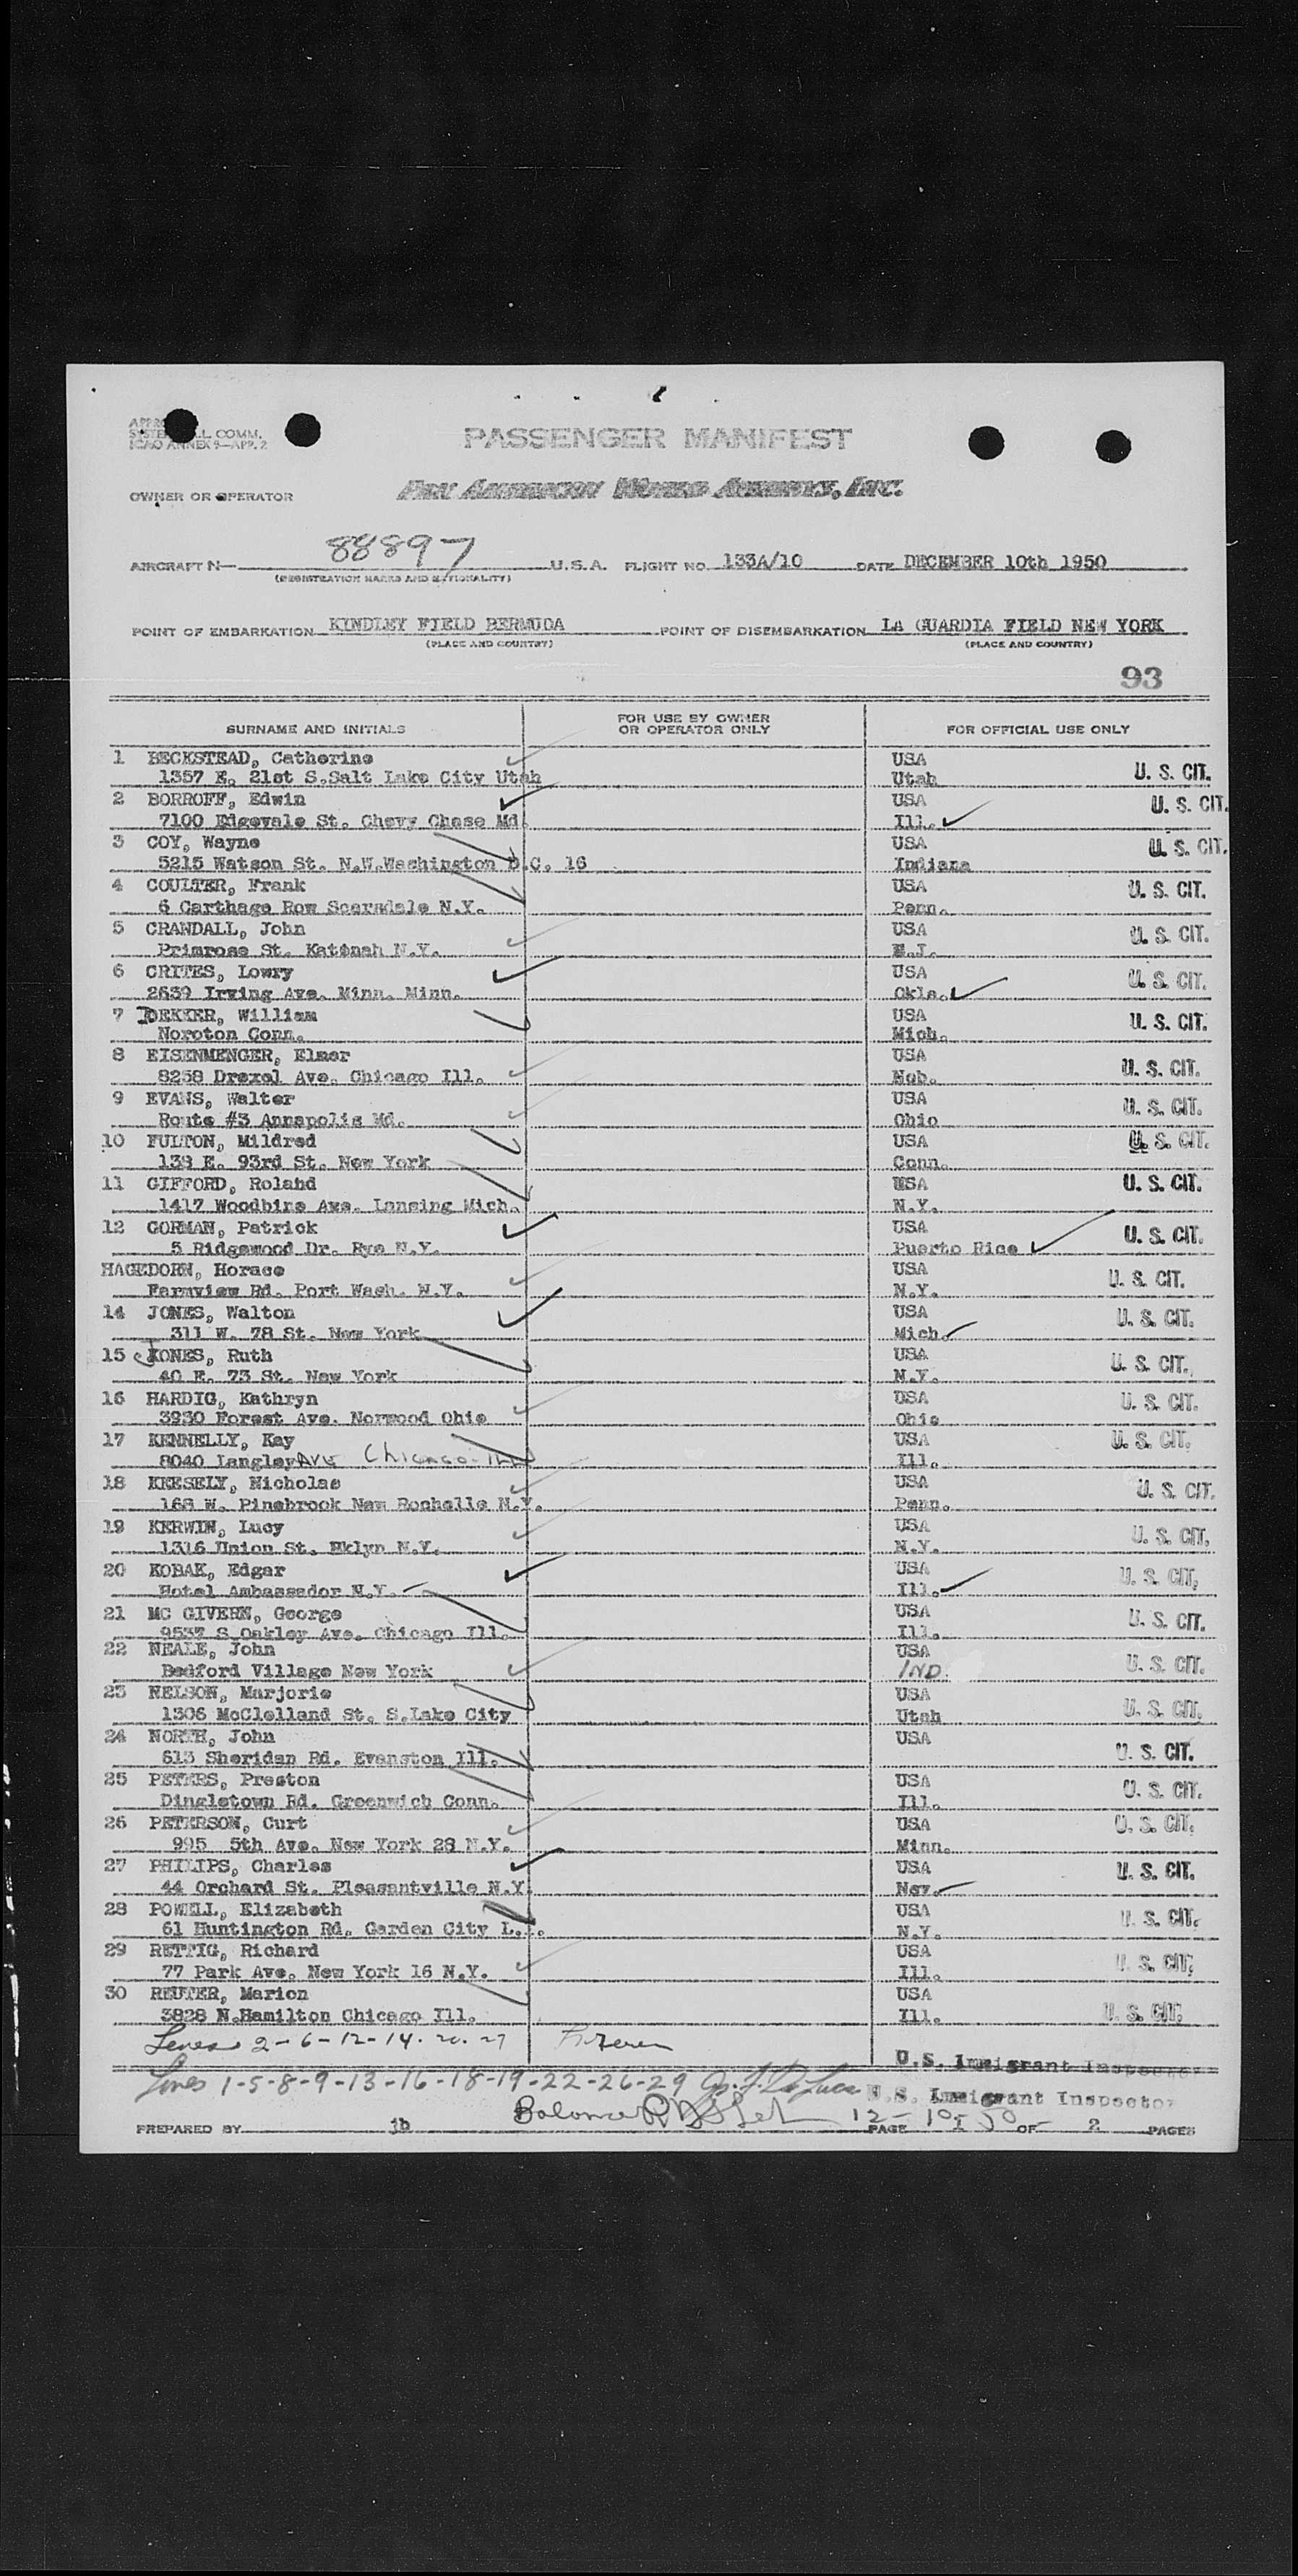 PASSENGER MANIFEST
OWNER OR OPERATOR
PAN AMERICAN WORLD AIRWAYS, INC.
AIRCRAFT N— 88897 U.S.A. FLIGHT NO. 133A/10 DATE DECEMBER 10th 1950
(REGISTRATION MARKS AND NATIONALITY)
POINT OF EMBARKATION KINDLEY FIELD BERMUDA POINT OF DISEMBARKATION LA GUARDIA FIELD NEW YORK
(PLACE AND COUNTRY) (PLACE AND COUNTRY)
93
SURNAME AND INITIALS FOR USE BY OWNER OR OPERATOR ONLY FOR OFFICIAL USE ONLY
1 BECKSTEAD, Catherine USA
1357 E. 21st S.Salt Lake City Utah Utah U. S. CIT.
2 BORROFF, Edwin USA U. S. CIT.
7100 Edgevale St. Chevy Chase Md. Ill.
3 COY, Wayne USA U. S. CIT.
5215 Watson St. N.W.Washington D.C. 16 Indiana
4 COULTER, Frank USA U. S. CIT.
6 Carthage Row Scarsdale N.Y. Penn.
5 CRANDALL, John USA U. S. CIT.
Primrose St. Katonah N.Y. N.J.
6 CRITES, Lowry USA U. S. CIT.
2639 Irving Ave. Minn. Minn. Okla.
7 DEKKER, William USA U. S. CIT.
Noroton Conn. Mich.
8 EISENMENGER, Elmer USA U. S. CIT.
8258 Drexel Ave. Chicago Ill. Neb.
9 EVANS, Walter USA U. S. CIT.
Route #3 Annapolis Md. Ohio
10 FULTON, Mildred USA U. S. CIT.
138 E. 93rd St. New York Conn.
11 GIFFORD, Roland USA U. S. CIT.
1417 Woodbine Ave. Lansing Mich. N.Y.
12 GORMAN, Patrick USA U. S. CIT.
5 Ridgewood Dr. Rye N.Y. Puerto Rico
HAGEDORN, Horace USA U. S. CIT.
Farmview Rd. Port Wash. N.Y. N.Y.
14 JONES, Walton USA U. S. CIT.
311 W. 78 St. New York Mich.
15 JONES, Ruth USA U. S. CIT.
40 E. 73 St. New York N.Y.
16 HARDIG, Kathryn USA U. S. CIT.
3930 Forest Ave. Norwood Ohio Ohio
17 KENNELLY, Kay USA U. S. CIT.
8040 Langley Ave Chicago Ill Ill.
18 KEESELY, Nicholas USA U. S. CIT.
168 W. Pinebrook New Rochelle N.Y. Penn.
19 KERWIN, Lucy USA U. S. CIT.
1316 Union St. Bklyn N.Y. N.Y.
20 KOBAK, Edgar USA U. S. CIT.
Hotel Ambassador N.Y. Ill.
21 MC GIVERN, George USA U. S. CIT.
9537 S.Oakley Ave. Chicago Ill. Ill.
22 NEALE, John USA U. S. CIT.
Bedford Village New York IND.
23 NELSON, Marjorie USA U. S. CIT.
1306 McClelland St. S.Lake City Utah
24 NORTH, John USA U. S. CIT.
613 Sheridan Rd. Evanston Ill.
25 PETERS, Preston USA U. S. CIT.
Dingletown Rd. Greenwich Conn. Ill.
26 PETERSON, Curt USA U. S. CIT.
995 5th Ave. New York 28 N.Y. Minn.
27 PHILIPS, Charles USA U. S. CIT.
44 Orchard St. Pleasantville N.Y. Nev.
28 POWELL, Elizabeth USA U. S. CIT.
61 Huntington Rd. Garden City L.I. N.Y.
29 RETTIG, Richard USA U. S. CIT.
77 Park Ave. New York 16 N.Y. Ill.
30 REUTER, Marion USA U. S. CIT.
3828 N.Hamilton Chicago Ill. Ill.
Lines 2-6-12-14-20-27
U.S. Immigrant Inspector
Lines 1-5-8-9-13-16-18-19-22-26-29
U.S. Immigrant Inspector
Balance 12-10-50
PREPARED BY jb PAGE OF 2 PAGES